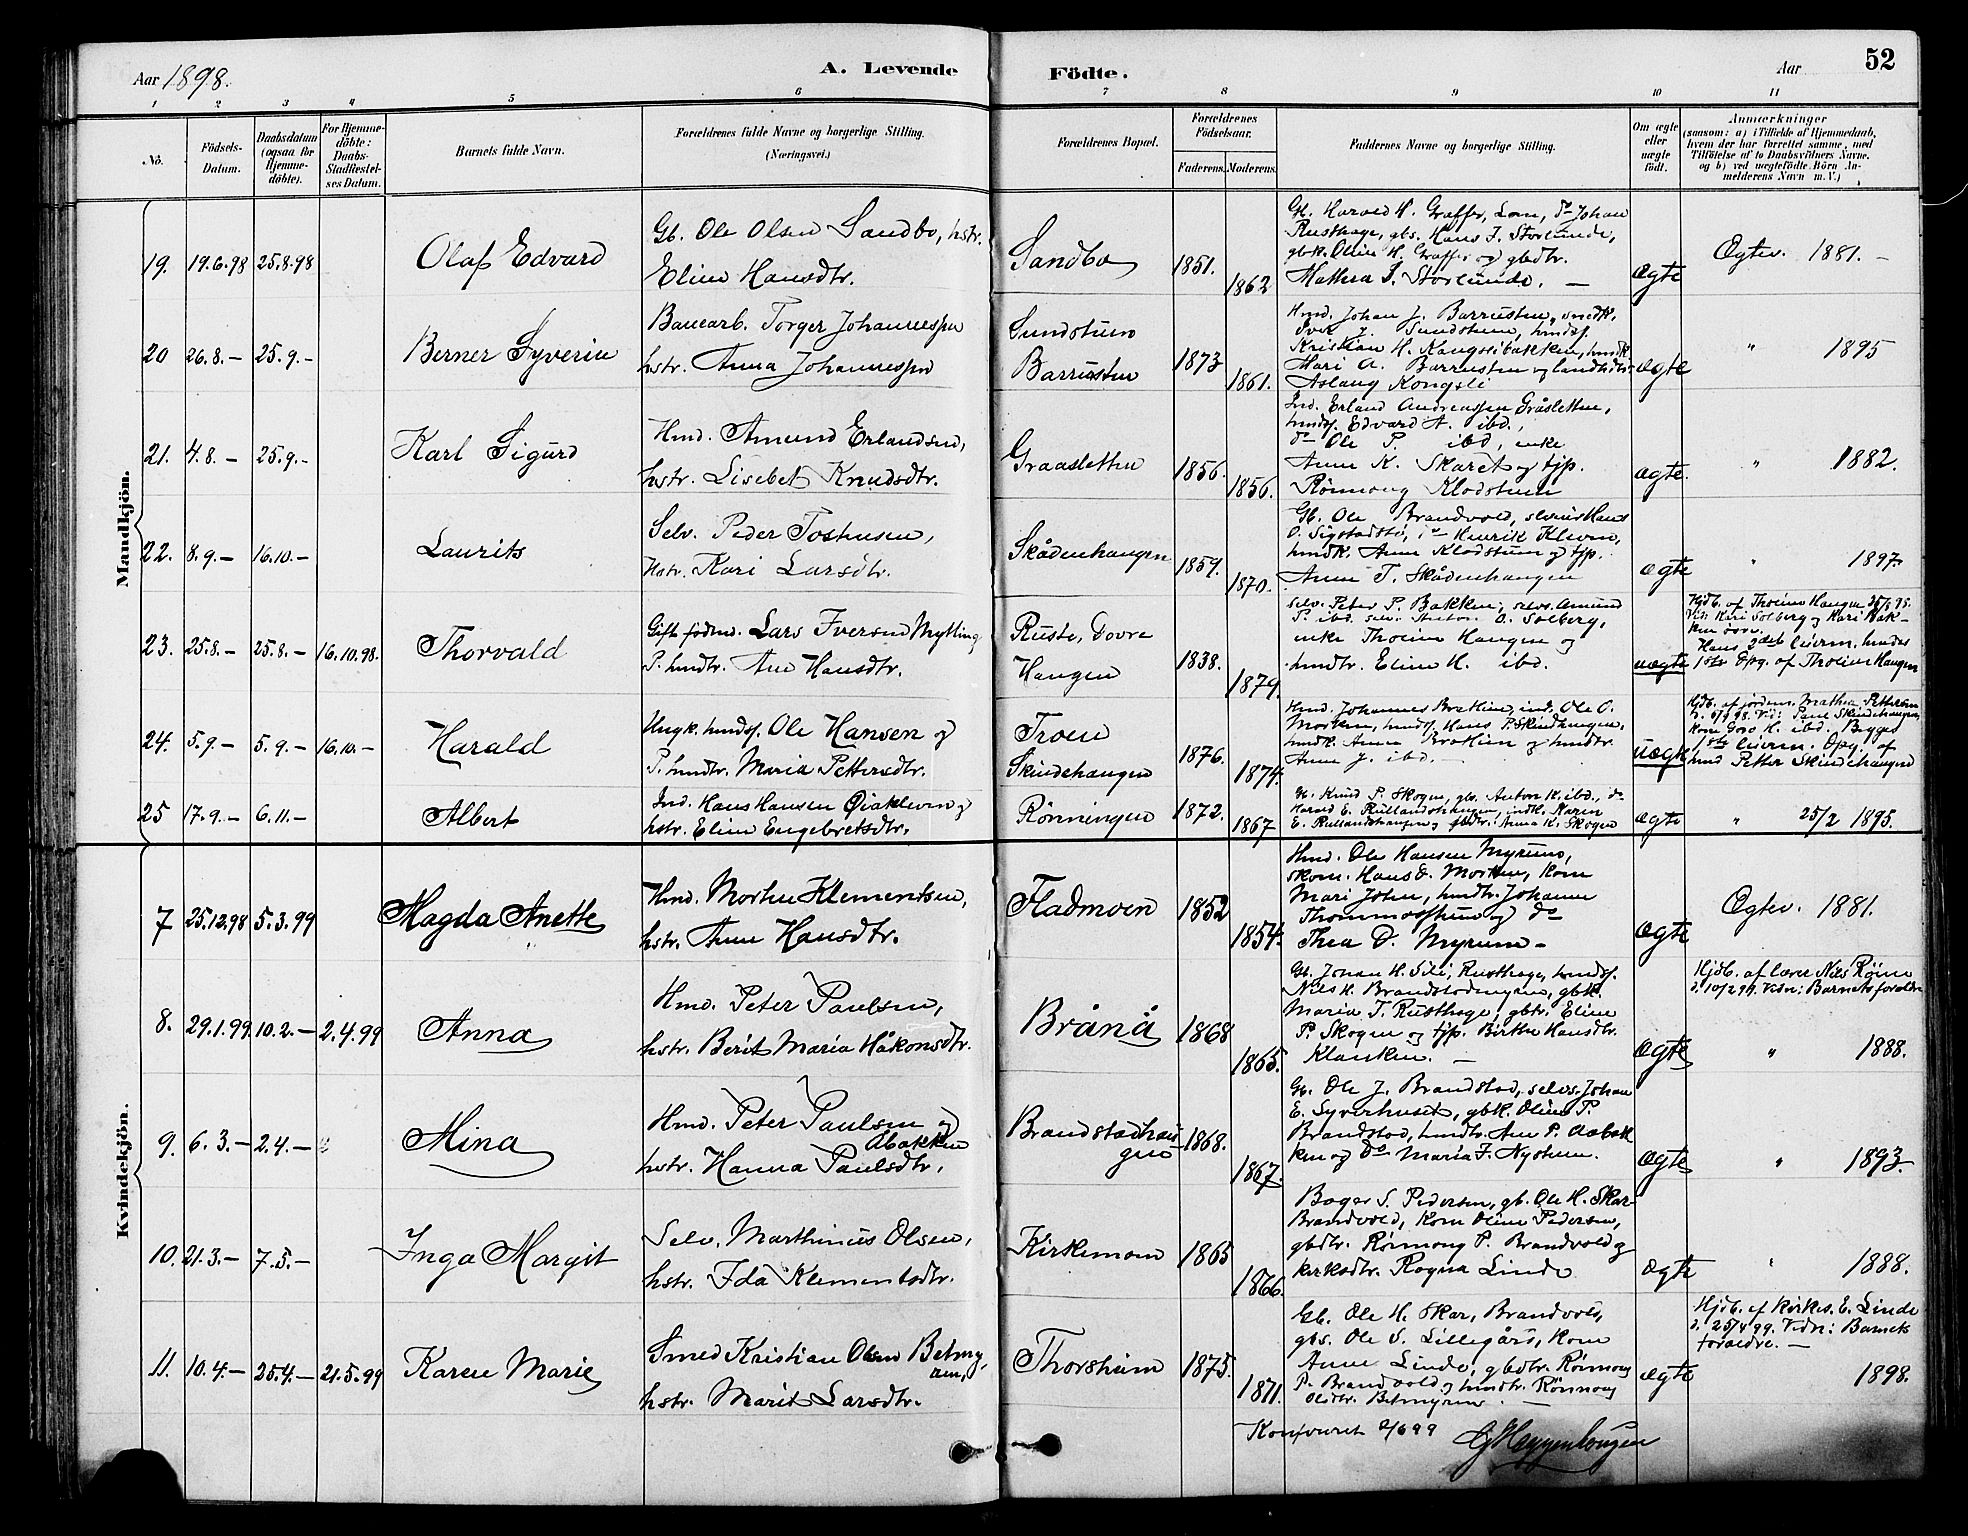 Aar 1898.
A. Levende
Födte.
Aar
52
1 2 3 4 5 6 7 8 9 10 11
No.
Födsels-
Datum.
Daabsdatum
(ogsaa for
Hjemme-
döbte).
For Hjemme-
döbte:
Daabs-
Stadfæstel-
ses Datum.
Barnets fulde Navn.
Forældrenes fulde Navne og borgerlige Stilling.
(Næringsvei.)
Forældrenes Bopæl.
Forældrenes
Födselsaar.
Faderens. Moderens.
Faddernes Navne og borgerlige Stilling.
Om ægte
eller
uægte
födt.
Anmærkninger
(saasom: a) i Tilfælde af Hjemmedaab,
hvem der har forrettet samme, med
Tilföielse af to Daabsvidners Navne,
og b) ved uægtefödte Börn An-
melderens Navn m. V.)
Mandkjön.
19. 19.6.98 25.8.98
Olaf Edvard
Gb. Ole Olsen Sandbo, hstr.
Eline Hansdtr.
Sandbo
1851.
1862
Gb. Harald H. Graffer, Lom, do Johan
Rusthage, gbs. Hans J. Storlunde,
gbk. Oline H. Graffer og gbdtr.
Mathea J. Storlunde. —
ægte
Ægtev. 1881. —
20 26.8.— 25.9.—
Berner Syverin
Banearb. Torger Johannessen
hstr. Anna Johannessen
Sundstuen
Barrusten
1873
1861.
Hmd. Johan J. Barrusten, smedk.
Iver J. Sundstuen, hmdsf.
Kristian H. Kongslibakken, hmdk.
Mari A. Barrusten og landhdtr.
Aslaug Kongsli
ægte
" 1895
21. 4.8.— 25.9.—
Karl Sigurd
Hmd. Amund Erlandsen,
hstr. Lisebet Knudsdtr.
Graasletten
1856.
1856.
Ind. Erland Andreassen Gråsletten,
hmdsf. Edvard A. ibd.,
do Ole P. ibd, enke
Anne K. Skaret og tjp.
Rønnoug Klodstuen
ægte.
" 1882.
22. 8.9.— 16.10.—
Laurits
Selv. Peder Toshusen,
Hstr. Kari Larsdtr.
Skådenhaugen
1859.
1870.
Gb. Ole Brandvold, selveier Hans
O. Sigstadstø, do Henrik Kleven,
hmdk. Anne Klodstuen og tjp.
Anne T. Skådenhaugen
ægte
" 1897.
23. 25.8.— 25.8.— 16.10.98.
Thorvald
Gift födmd. Lars Iversen Mytting
P. hmdtr. Ane Hansdtr.
Ruste, Dovre
Haugen
1838.
1879.
selv. Peter P. Bakken, selvs. Amund
P. ibd. selv. Anton O. Solberg,
enke Thoine Haugen og
hmdtr. Eline H. ibd.
uægte
Hjdb. af Thoine Haugen 25/8 98.
Vidn. Kari Solberg og Kari Bak-
ken övre.
Hans 2det leierm. hendes
1ste Opg. af Thoine Haugen
24. 5.9.— 5.9.— 16.10.—
Harald
Ungk. hmdsf. Ole Hansen og
P. hmdtr. Maria Pettersdtr.
Troen
Skindehaugen
1876.
1874.
Hmd. Johannes Bræklien, ind. Ole O.
Morken, hmdsf. Hans P. Skindhaugen,
hmdk. Anne Bræklien og hmdtr.
Anne J. ibd. —
uægte
Hjdb. af jordm. Mathea Pettersen
d. 6/9 98. Vid: Paul Skindehaugen,
kone Goro K. ibd. Begges
1ste leierm. Opg. af
hmd Petter Skindehaugen
25 17.9.— 6.11.—
Albert
Ind. Hans Hansen Øiakleven og
hstr. Eline Engebretsdtr.
Rønningen
1872.
1867
Gb. Knud P. Skogen, gbs. Anton K. ibd., do
Harald E. Rullandshaugen, indk. Karen
E. Rullandshaugen og gbdtr. Anna K. Skogen
ægte
" 25/2 1895.
Kvindekjön.
7 25.12.98 5.3.99
Magda Anette
Hmd. Morten Klementsen,
hstr. Anne Hansdtr.
Fladmoen
1852
1854.
Hmd. Ole Hansen Myrum,
skom. Hans D. Morken, kone
Mari John, hmdtr. Johanne
Thommasstuen og do
Thea D. Myrum —
ægte
Ægtev. 1881.
8. 29.1.99 10.2.— 2.4.99
Anna
Hmd. Peter Paulsen,
hstr. Berit Maria Håkonsdtr.
Brånå
1868
1865.
Gb. Johan H. Sili, Rusthage, hmdsf.
Nils H. Brandstadmyren, gbk.
Maria T. Rusthage, gbtr. Eline
P. Skogen og tjp. Birthe Hansdtr.
Klanken. —
ægte
Hjdb. af lærer Nils Røine
d. 10/2 99. Vidn: Barnets foraldre
" 1888.
9. 6.3.— 2.4.—
Mina
Hmd. Peter Paulsen og
Åbakken
hstr. Hanna Paulsdtr.
Brandstadhau-
gen
1868.
1867.
Gb. Ole J. Brandstad, selvs. Johan
E. Syverhuset, gbk. Oline P.
Brandstad, hmdtr. Ane P. Aabak-
ken og do Maria J. Nystuen.
ægte
" 1893.
10. 21.3.— 7.5.—
Inga Margit
Selv. Marthinus Olsen,
hstr. Ida Klementsdtr.
Kirkemoen
1865
1866.
Bager S. Pedersen, gb. Ole H. Skar-
Brandvold, kone Oline Pedersen,
gbdtr. Rønnoug P. Brandvold og
kirksdtr. Ragna Linde
ægte
" 1888.
11. 10.4.— 25.4.— 21.5.99
Karen Marie
Smed Kristian Olsen Betmy-
ren,
hstr. Marit Larsdtr.
Thorshuen
1875.
1871.
Gb. Ole H. Skar, Brandvold,
gbs. Ole S. Lillegård, kone
Anne Linde, gbdtr. Rønnoug
P. Brandvold og hmdtr. Rønnoug
Olsdtr. Betmyren. —
ægte
Hjdb. af kirkes. E. Linde
d. 25/4 99. Vidn: Barnets
foraldre. —
1898.
Konfereret 2/6 99
G Heggenhougen